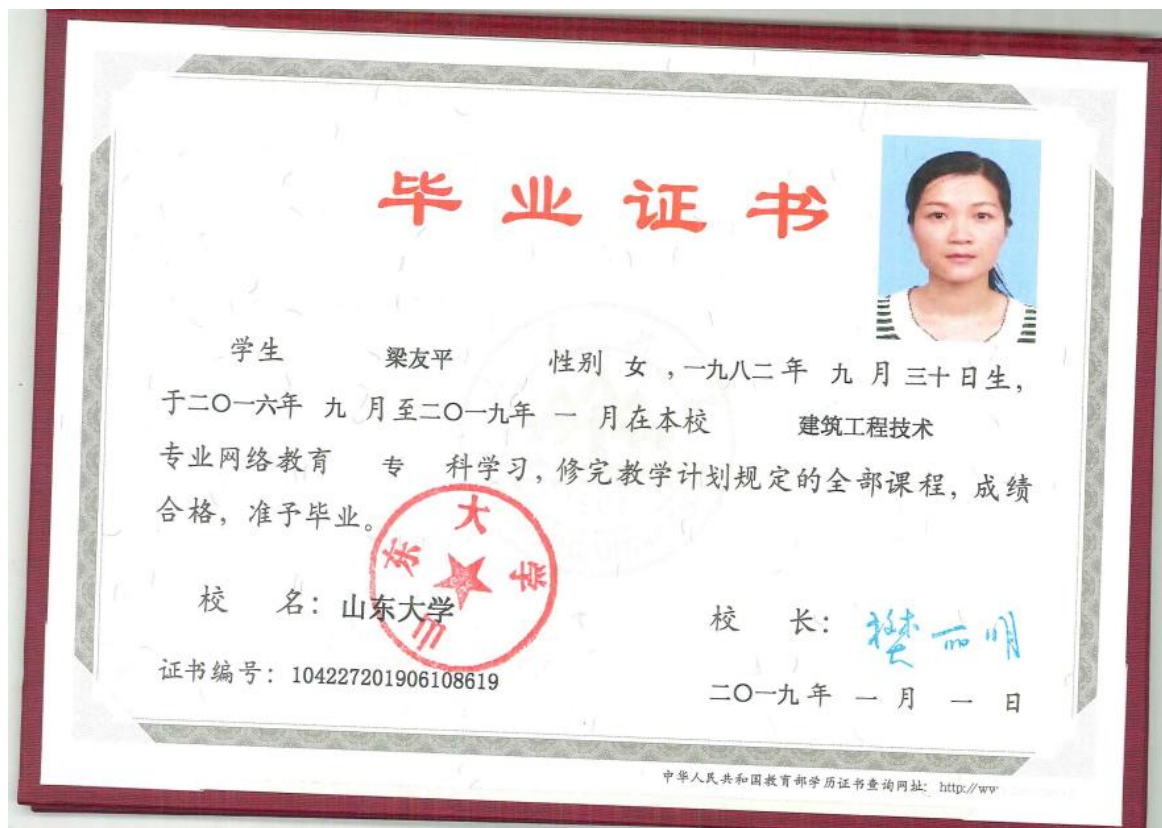 毕业证书
学生 梁友平 性别 女 ,一九八二年 九 月 三十日生,
于二〇一六年 九 月至二〇一九年 一 月在本校 建筑工程技术
专业网络教育 专 科学习,修完教学计划规定的全部课程,成绩
合格,准予毕业。
山东大学
校 名:山东大学
校 长:樊丽明
证书编号:104227201906108619
二〇一九年 一 月 一 日
中华人民共和国教育部学历证书查询网址: http://ww